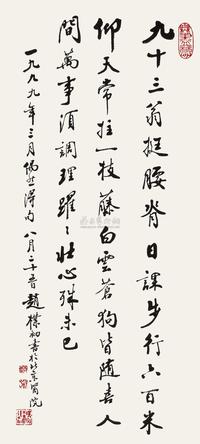 九十三翁挺腰脊日課步行六百米
仰天常拄一枝藤白雲蒼狗皆隨喜人
間萬事須調理躍〻壯心殊未已
一九九九年三月偶然得句八月二十晉趙樸初書於北京醫院